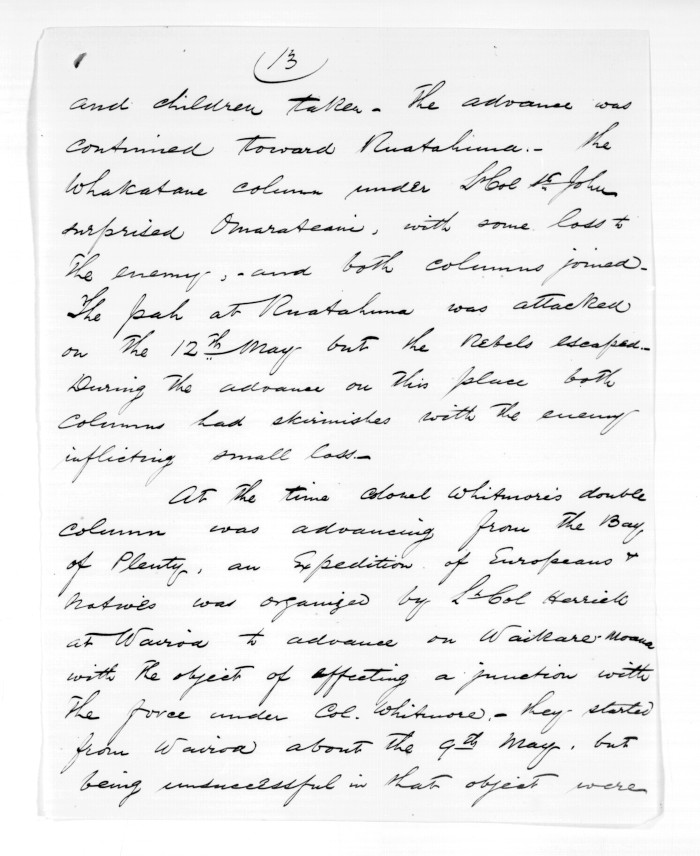 13
and children taken - The advance was
continued toward Ruatahuna. - The
Whakatane column under Lt Col St John
surprised Omarateani, with some loss to
the enemy, - and both columns joined -
The pah at Ruatahuna was attacked
on the 12th May but the Rebels escaped -
During the advance on this place both
columns had skirmishes with the enemy
inflicting small loss -
At the time Colonel Whitmore's double
column was advancing from the Bay
of Plenty, an Expedition of Europeans &
Natives was organized by Lt Col Herrick
at Wairoa to advance on Waikare-Moana
with the object of effecting a junction with
the force under Col. Whitmore. - they started
from Wairoa about the 9th May, but
being unsuccessful in that object were